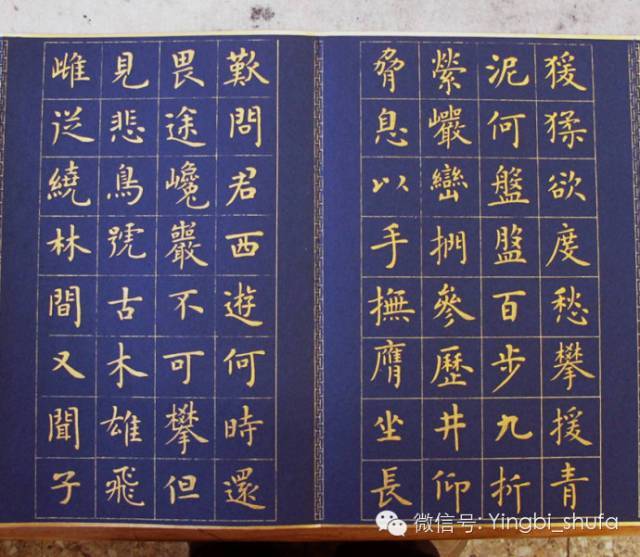 猨猱欲度愁攀援青
泥何盤盤百步九折
縈巖巒捫參歷井仰
脅息以手撫膺坐長
歎問君西遊何時還
畏途巉巖不可攀但
見悲鳥號古木雄飛
雌從繞林間又聞子
微信号: Yingbi_shufa